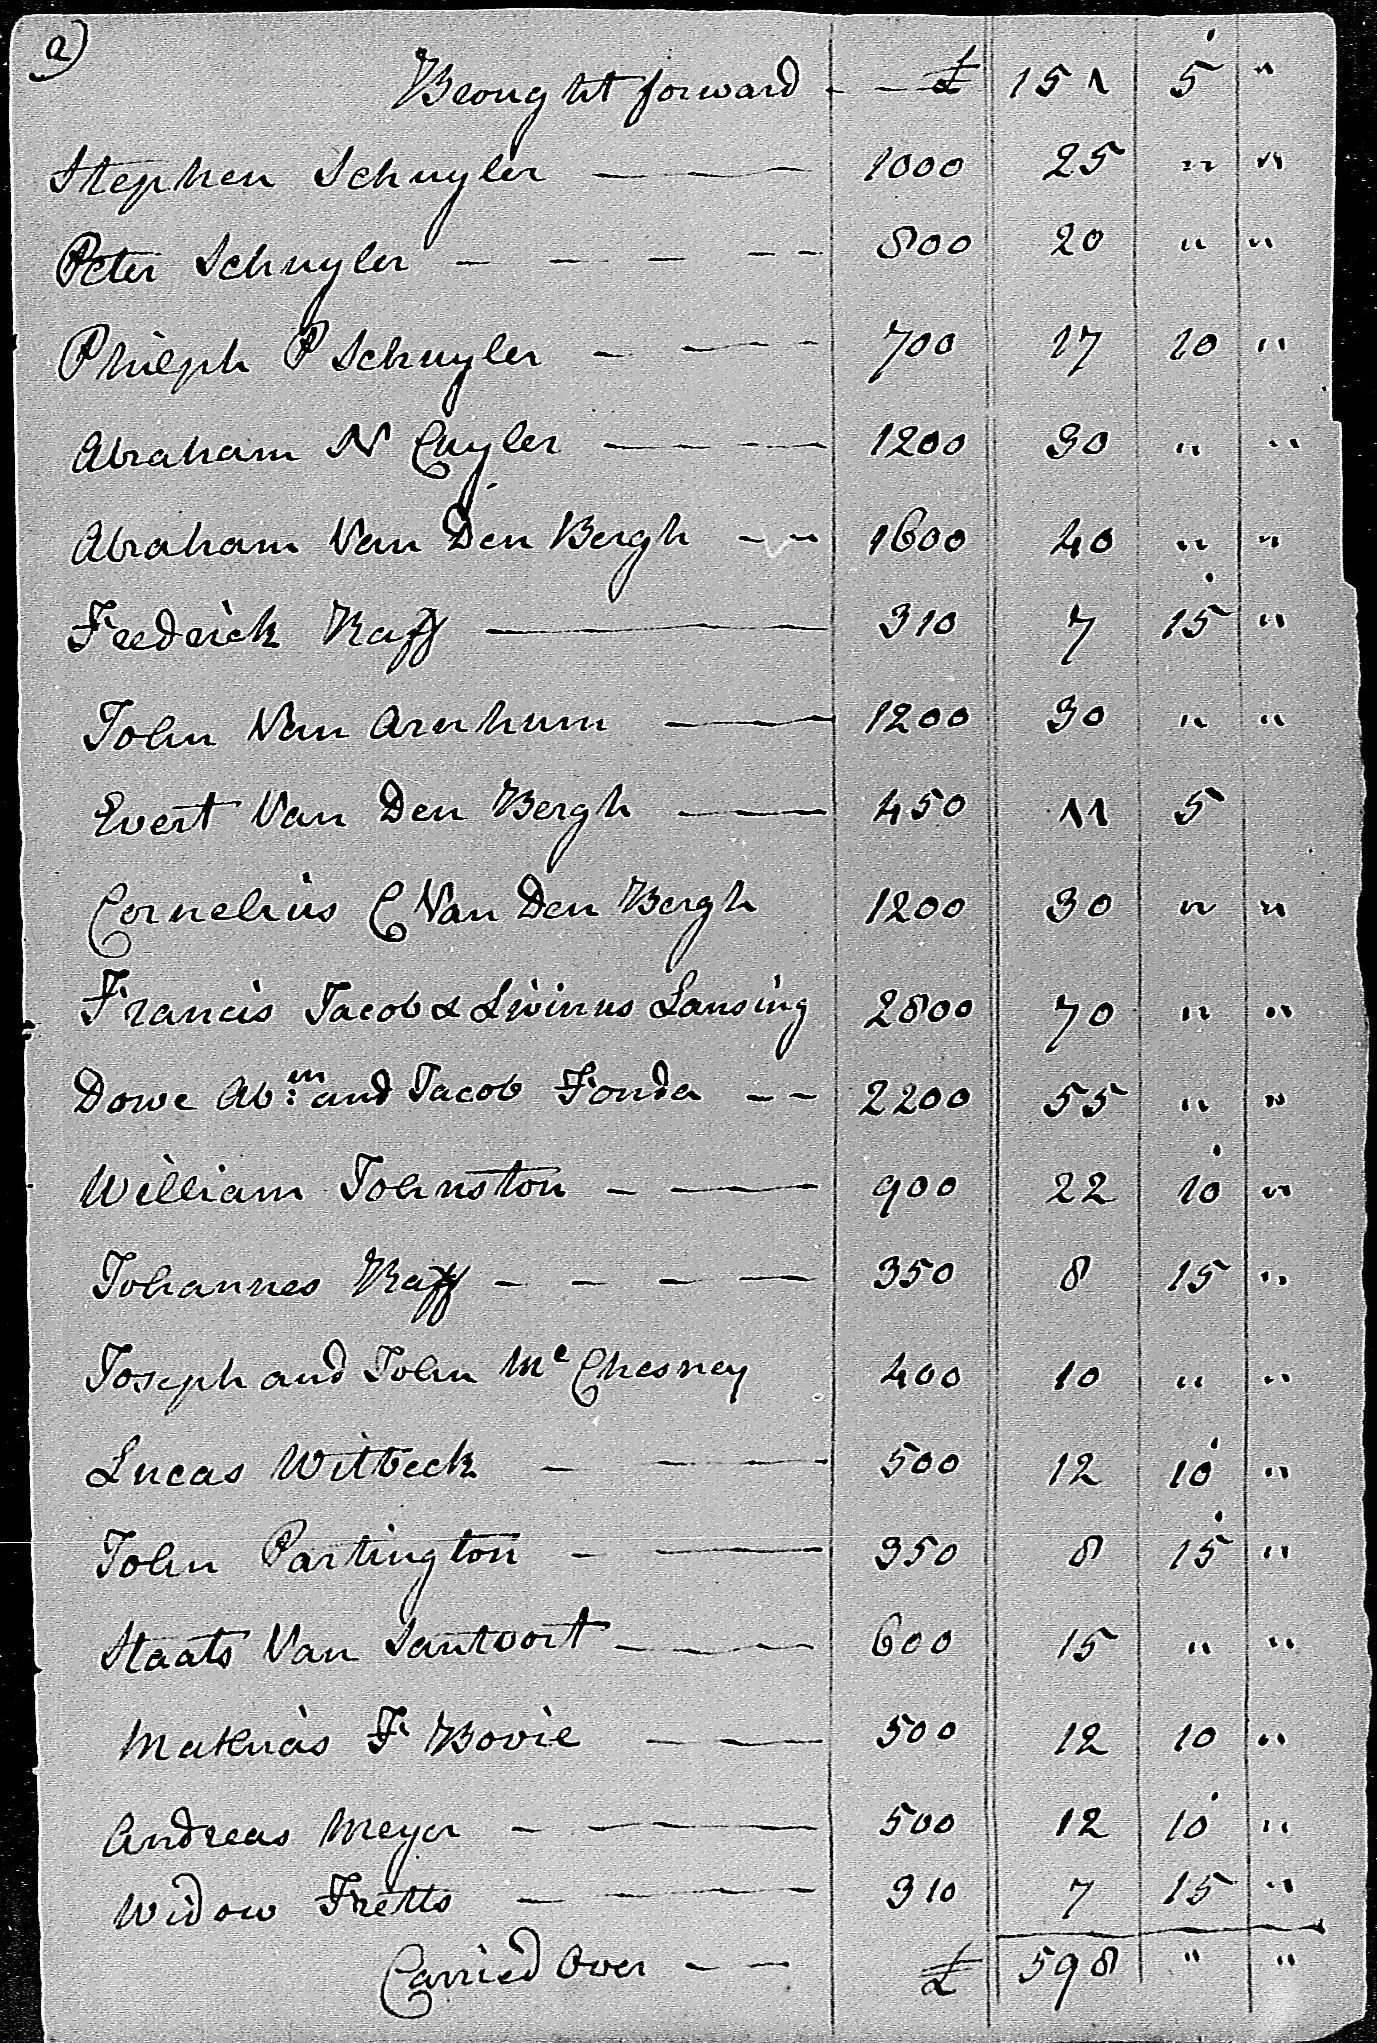 a)
Brought forward - - £ 151 5 "
Stephen Schuyler — — 1000 25 " "
Peter Schuyler - - - - - 800 20 " "
Philiph P Schuyler - — - 700 17 10 "
Abraham N Cuyler — - - 1200 30 " "
Abraham Van Den Bergh - - 1600 40 " "
Frederick Raff — 310 7 15 "
John Van Arnhum — 1200 30 " "
Evert Van Den Bergh — 450 11 5
Cornelius C Van Den Bergh 1200 30 " "
Francis Jacob & Livinus Lansing 2800 70 " "
Dowe Abm: and Jacob Fonda - - 2200 55 " "
William Johnston - — 900 22 10 "
Johannes Raff - - - — 350 8 15 "
Joseph and John Mc Chesney 400 10 " "
Lucas Witbeck - — 500 12 10 "
John Partington - — 350 8 15 "
Staats Van Santvort — 600 15 " "
Mathias F Bovie — 500 12 10 "
Andreas Meyer - — 500 12 10 "
Widow Fretts - — 310 7 15 "
Carried Over - - £ 598 " "